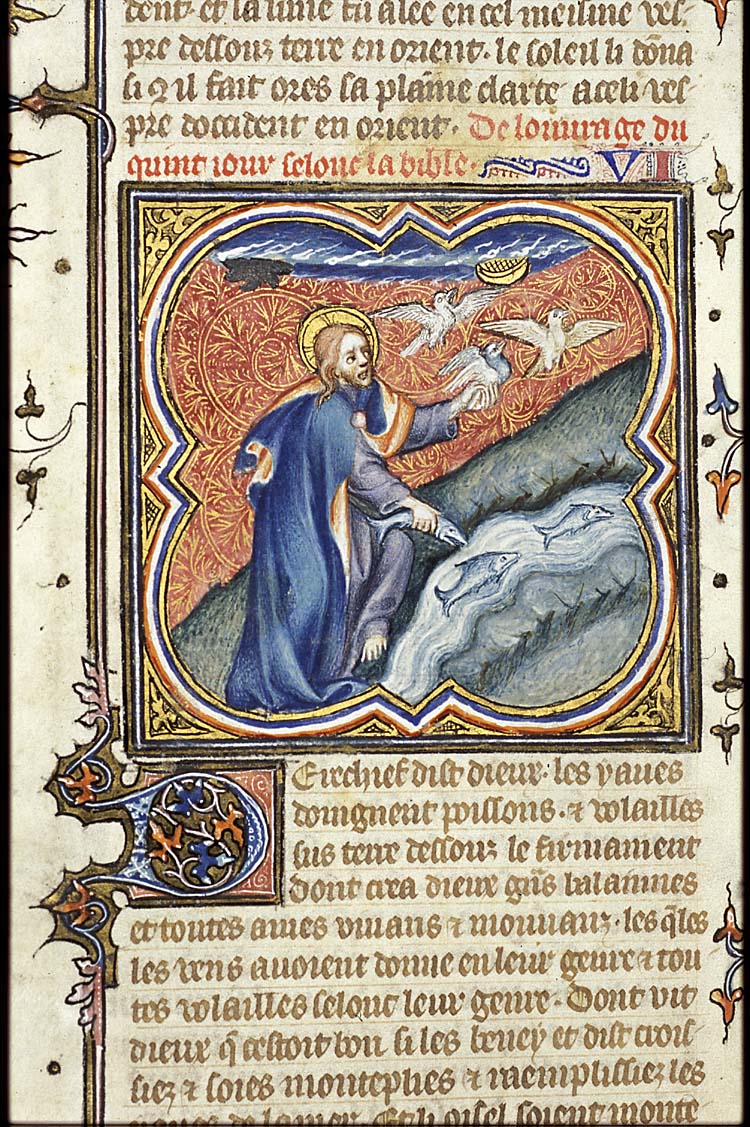 dont. et la lune fu alee en cel meisme ves-
pre dessouz terre en orient. le soleil li dona
si q̃ il fait ores sa plaine clarte a celi ves-
pre doccident en orient. De louurage du
quint iour selonc la bible. VI
Derechief dist dieux. les yaues
doingnent poissons. ⁊ volailles
sus terre dessouz le firmament
dont crea dieux grãs balainnes
et toutes ames viuans ⁊ mouuanz. les q̃les
les yaues auoient donne en leur genre ⁊ tou
tes volailles selonc leur genre. Dont vit
dieux q̃ cestoit bon si les beney et dist crois-
siez ⁊ soies monteplies ⁊ raemplissiez les
yaues de la mer. Et li oisel soient monte